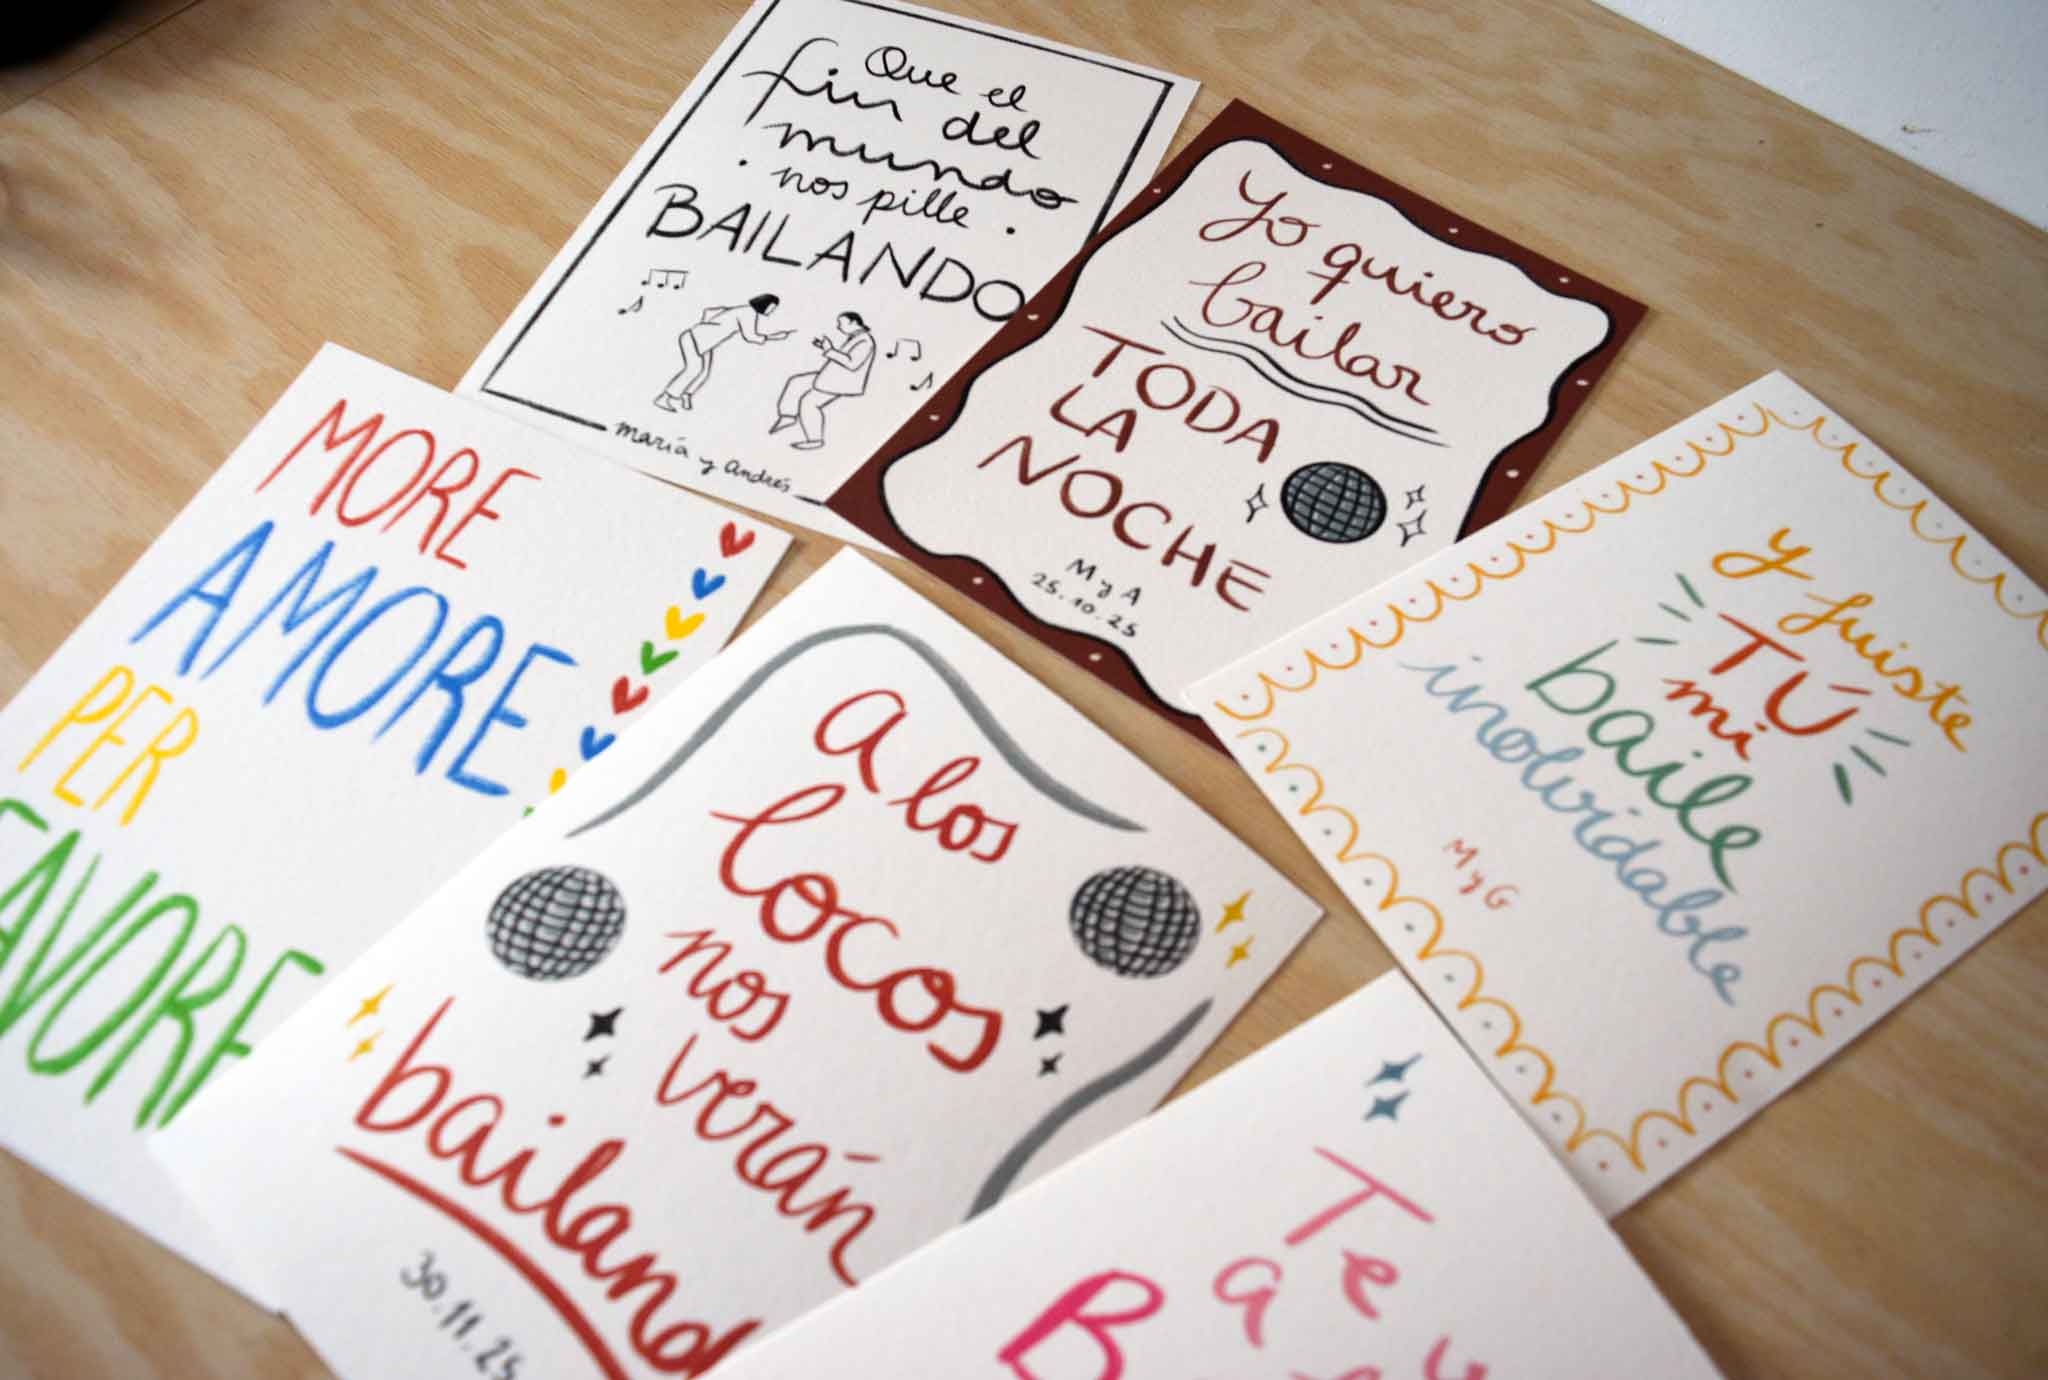 Que el
fin del
mundo
nos pille
BAILANDO
maría y Andrés
Yo quiero
bailar
TODA
LA
NOCHE
M y A
25.10.25
MORE
AMORE
PER
FAVORE
A los
locos
nos
verán
bailand
30.11.25
y fuiste
TÚ
mi
baile
inolvidable
M y G
Te
a
B